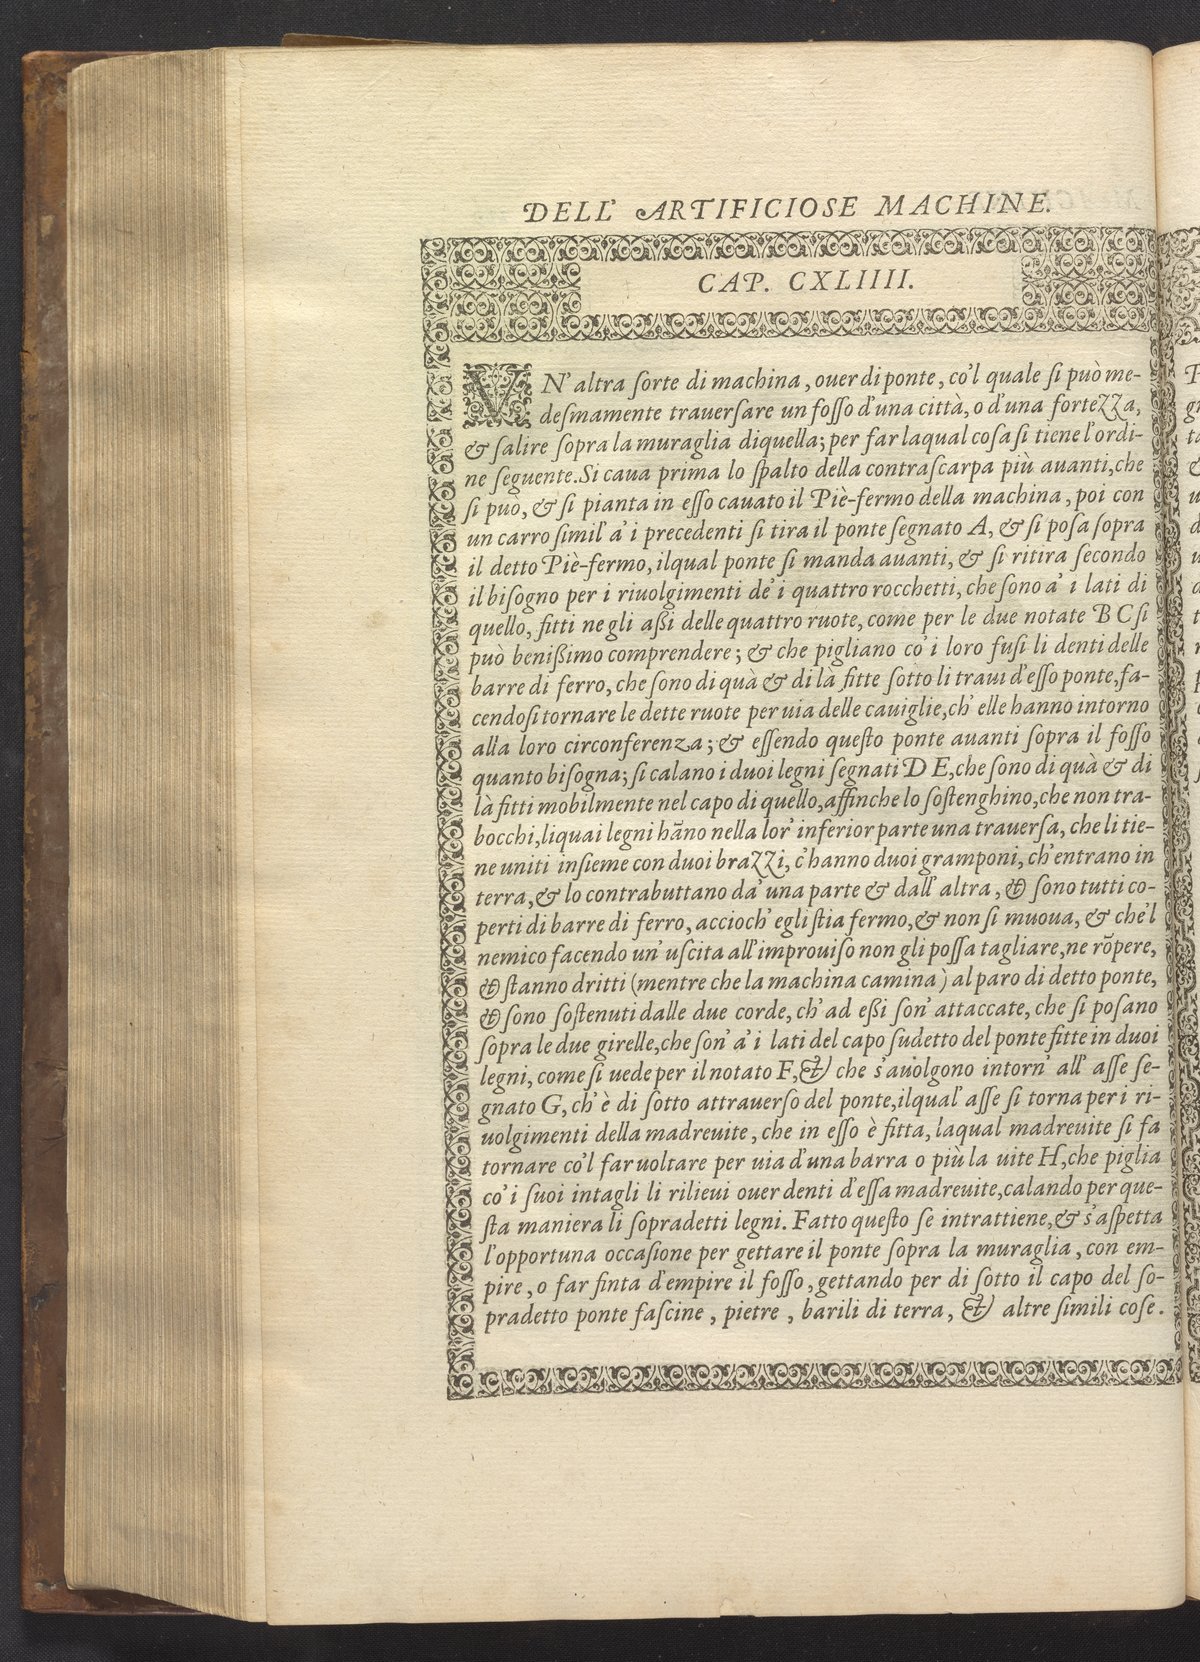 DELL' ARTIFICIOSE MACHINE.
CAP. CXLIIII.
VN' altra ſorte di machina, ouer di ponte, co'l quale ſi può me-
deſmamente trauerſare un foſſo d'una città, o d'una fortezza,
& ſalire ſopra la muraglia di quella; per far laqual coſa ſi tiene l'ordi-
ne ſeguente. Si caua prima lo ſpalto della contraſcarpa più auanti, che
ſi può, & ſi pianta in eſſo cauato il Piè-fermo della machina, poi con
un carro ſimil' a' i precedenti ſi tira il ponte ſegnato A, & ſi poſa ſopra
il detto Piè-fermo, ilqual ponte ſi manda auanti, & ſi ritira ſecondo
il biſogno per i riuolgimenti de' i quattro rocchetti, che ſono a' i lati di
quello, fitti ne gli aßi delle quattro ruote, come per le due notate B C ſi
può benißimo comprendere; & che pigliano co' i loro fuſi li denti delle
barre di ferro, che ſono di quà & di là fitte ſotto li traui d'eſſo ponte, fa-
cendoſi tornare le dette ruote per uia delle cauiglie, ch' elle hanno intorno
alla loro circonferenza; & eſſendo queſto ponte auanti ſopra il foſſo
quanto biſogna; ſi calano i duoi legni ſegnati D E, che ſono di quà & di
là fitti mobilmente nel capo di quello, affinche lo ſoſtenghino, che non tra-
bocchi, li quai legni hāno nella lor' inferior parte una trauerſa, che li tie-
ne uniti inſieme con duoi brazzi, c'hanno duoi gramponi, ch'entrano in
terra, & lo contrabuttano da' una parte & dall' altra, & ſono tutti co-
perti di barre di ferro, accioch' egli ſtia fermo, & non ſi muoua, & che'l
nemico facendo un' uſcita all' improuiſo non gli poſſa tagliare, ne rōpere,
& ſtanno dritti (mentre che la machina camina) al paro di detto ponte,
& ſono ſoſtenuti dalle due corde, ch' ad eßi ſon' attaccate, che ſi poſano
ſopra le due girelle, che ſon' a' i lati del capo ſudetto del ponte fitte in duoi
legni, come ſi uede per il notato F, & che s'auolgono intorn' all' aſſe ſe-
gnato G, ch' è di ſotto attrauerſo del ponte, ilqual' aſſe ſi torna per i ri-
uolgimenti della madreuite, che in eſſo è fitta, laqual madreuite ſi fa
tornare co'l far uoltare per uia d'una barra o più la uite H, che piglia
co' i ſuoi intagli li rilieui ouer denti d'eſſa madreuite, calando per que-
ſta maniera li ſopradetti legni. Fatto queſto ſe intrattiene, & s'aſpetta
l'opportuna occaſione per gettare il ponte ſopra la muraglia, con em-
pire, o far finta d'empire il foſſo, gettando per di ſotto il capo del ſo-
pradetto ponte faſcine, pietre, barili di terra, & altre ſimili coſe.